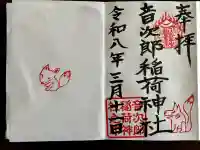 奉拝
音次郎稲荷神社
令和八年三月十二日
音次郎
稲荷神
社